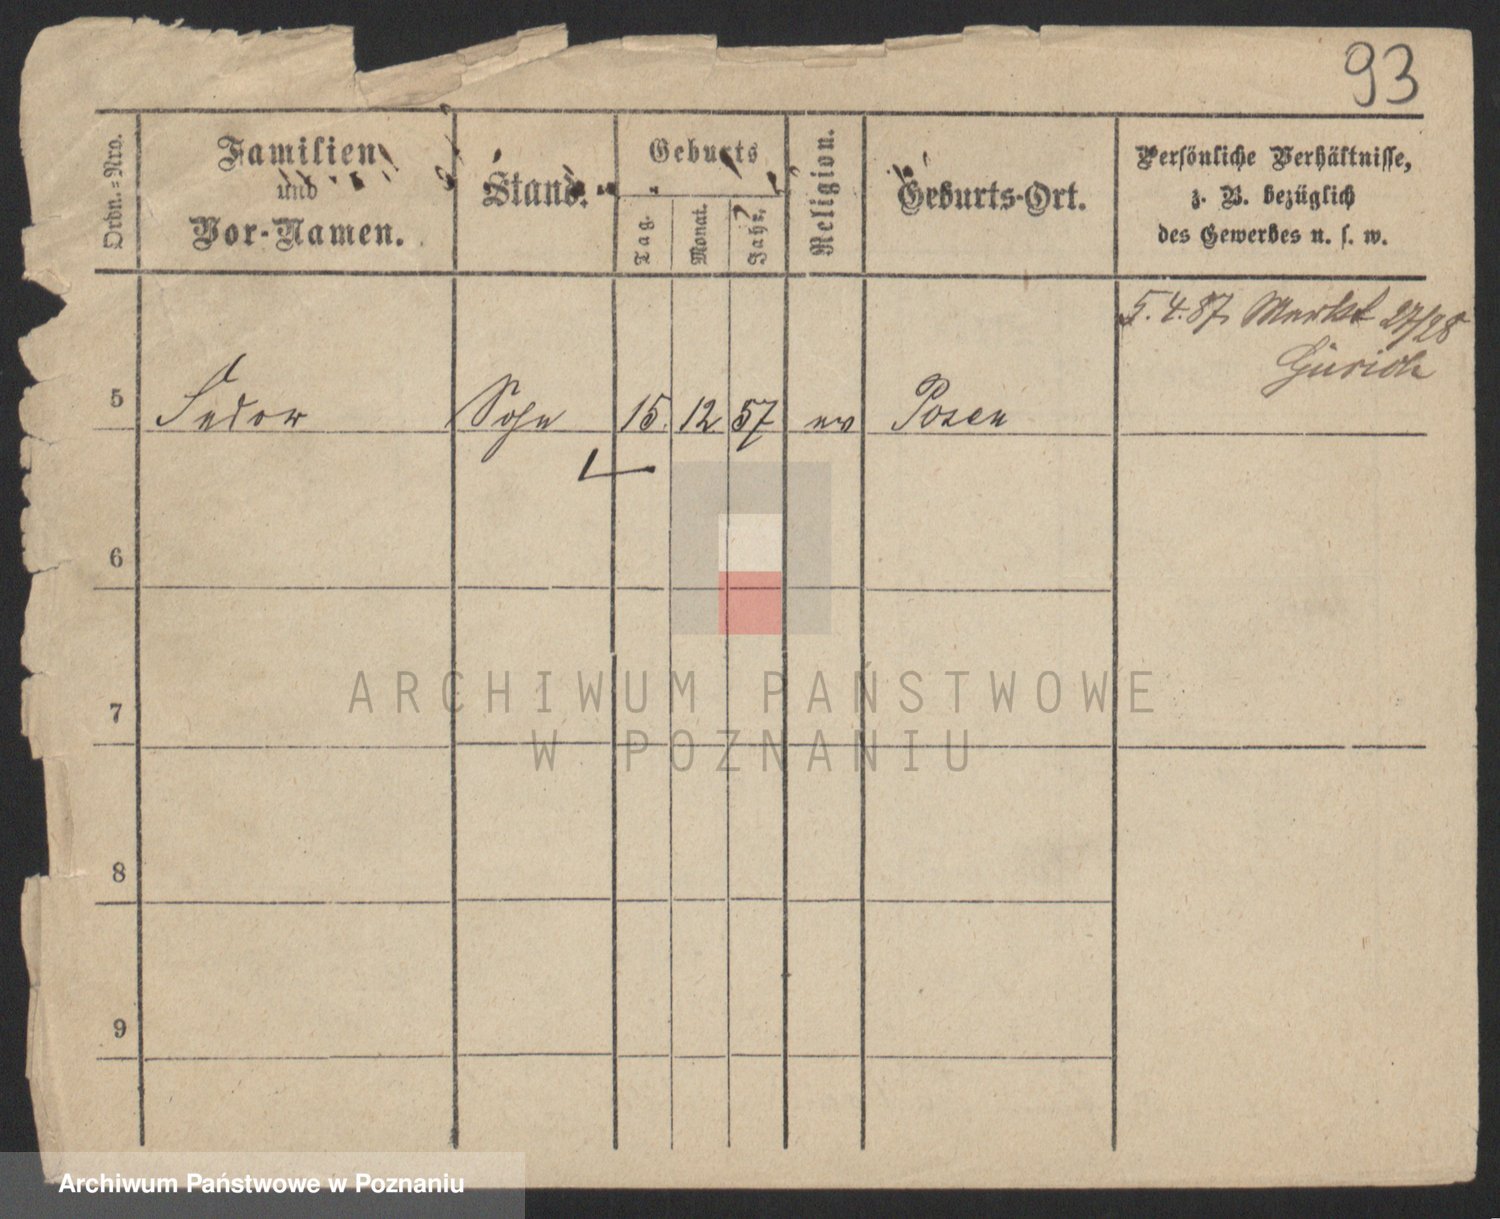 93
Ordn.=Nro.
Familien
und
Vor-Namen.
Stand.
Geburts
Tag.
Monat.
Jahr.
Religion.
Geburts-Ort.
Persönliche Verhältnisse,
z. B. bezüglich
des Gewerbes u. s. w.
5.4.87. Markt 27/28
5 Fedor Sohn 15. 12 57 ev Posen
6
7
8
9
ARCHIWUM PAŃSTWOWE
W POZNANIU
Archiwum Państwowe w Poznaniu